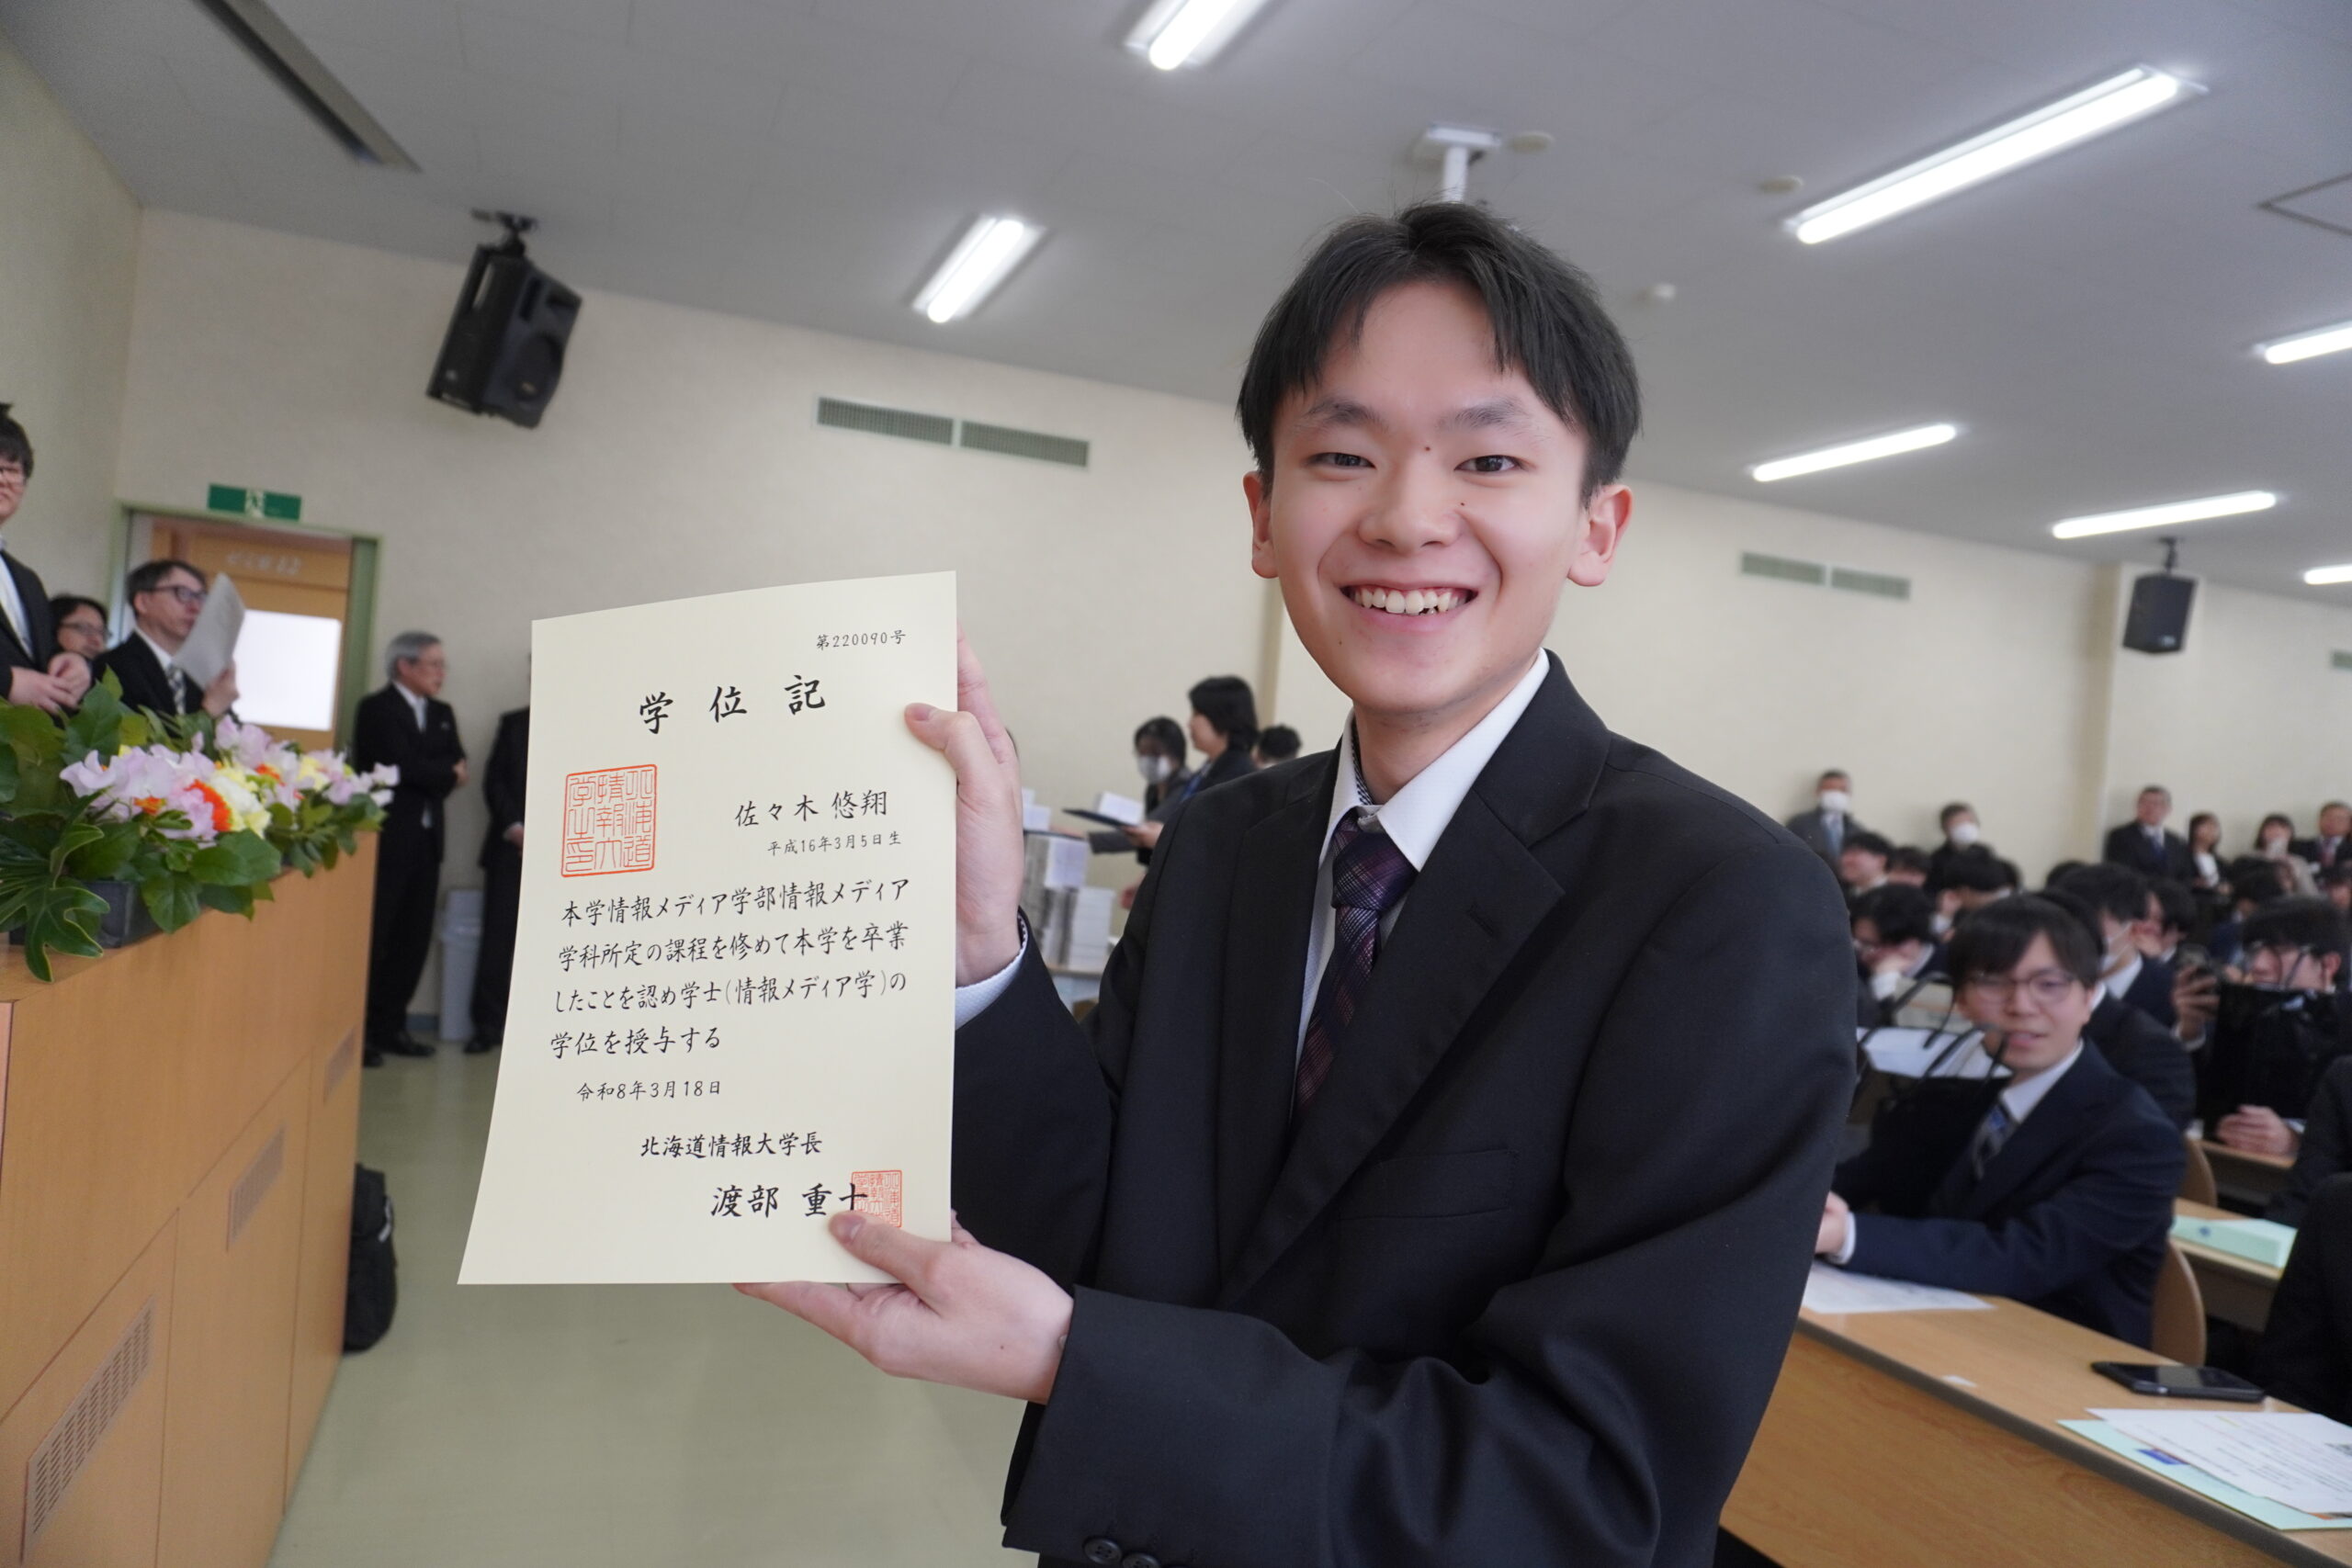 第220090号
学位記
佐々木 悠翔
平成16年3月5日生
本学情報メディア学部情報メディア
学科所定の課程を修めて本学を卒業
したことを認め学士(情報メディア学)の
学位を授与する
令和8年3月18日
北海道情報大学長
渡部 重十